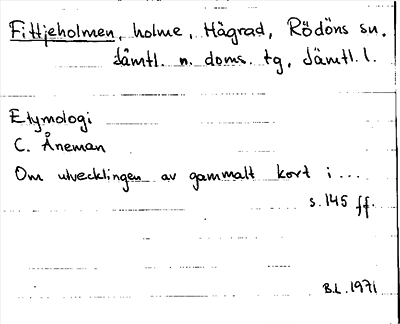 Fittjeholmen, holme, Hägrad, Rödöns sn.
Jämtl. n. doms. tg, Jämtl. l.
Etymologi
C. Åneman
Om utvecklingen av gammalt kort i ...
s. 145 ff.
B.L. 1971